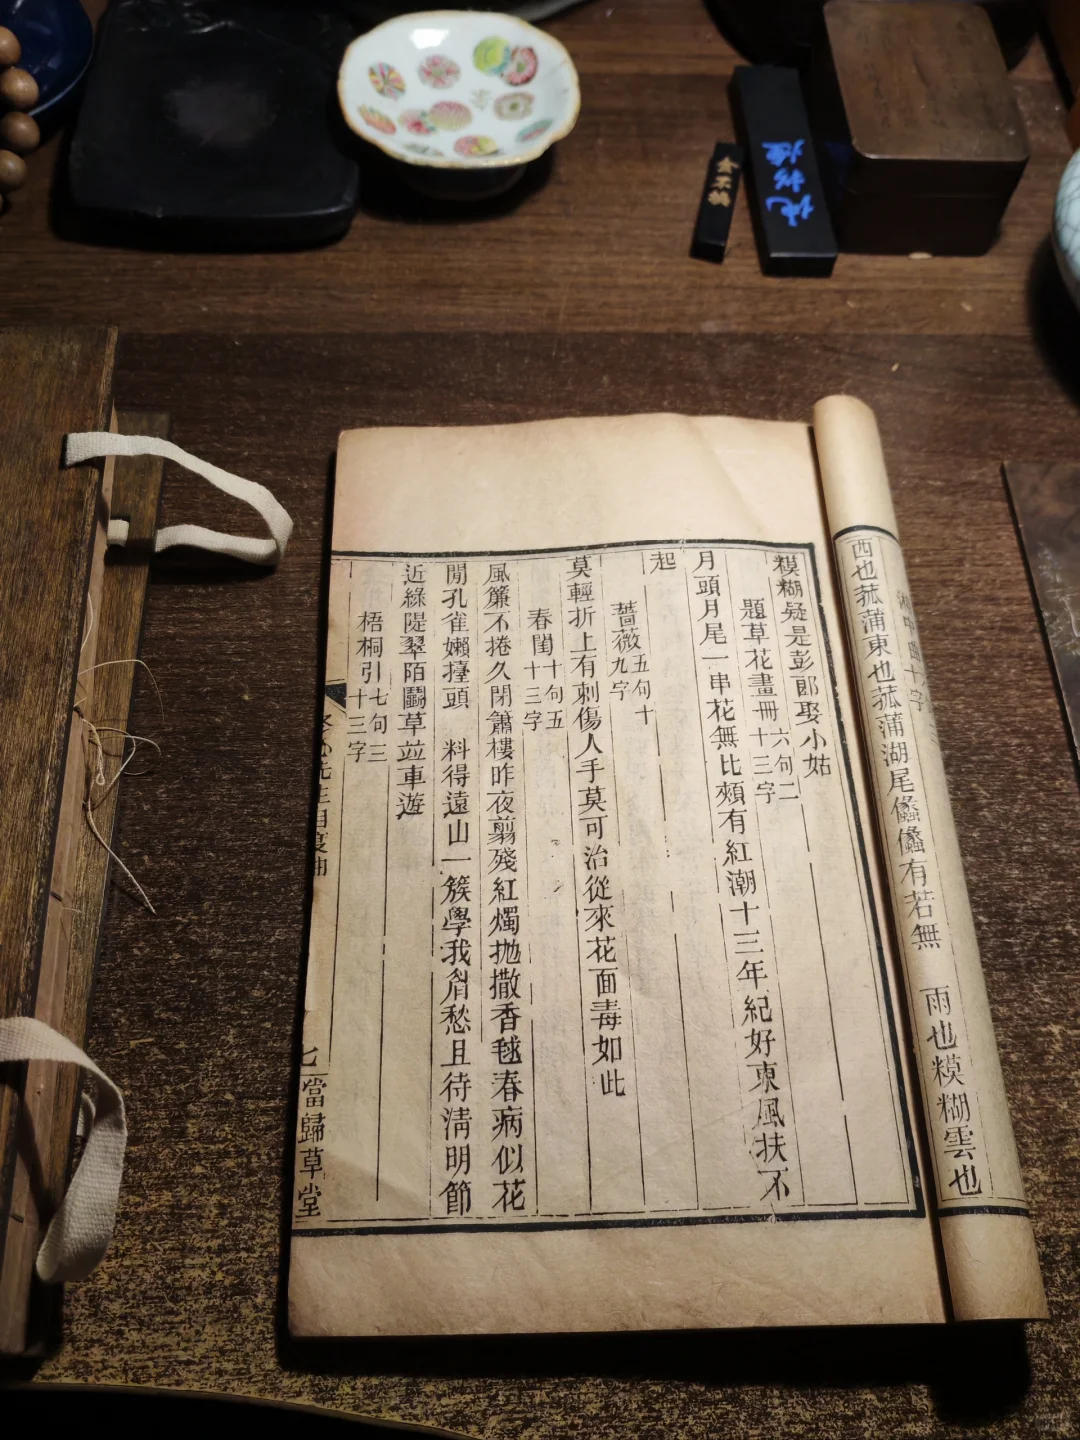 西也菰蒲東也菰蒲湖尾儵儵有若無　雨也糢糊雲也
糢糊疑是彭郎娶小姑
題草花畫冊六句二十三字
月頭月尾一串花無比頰有紅潮十三年紀好東風扶不
起
薔薇五句十九字
莫輕折上有刺傷人手莫可治從來花面毒如此
春閨十句五十三字
風簾不捲久閉簫樓昨夜翦殘紅燭拋撒香毬春病似花
閒孔雀嬾擡頭　料得遠山一簇學我眉愁且待清明節
近綠隄翠陌鬭草並車遊
梧桐引七句三十三字
先生自度曲
七
當歸草堂